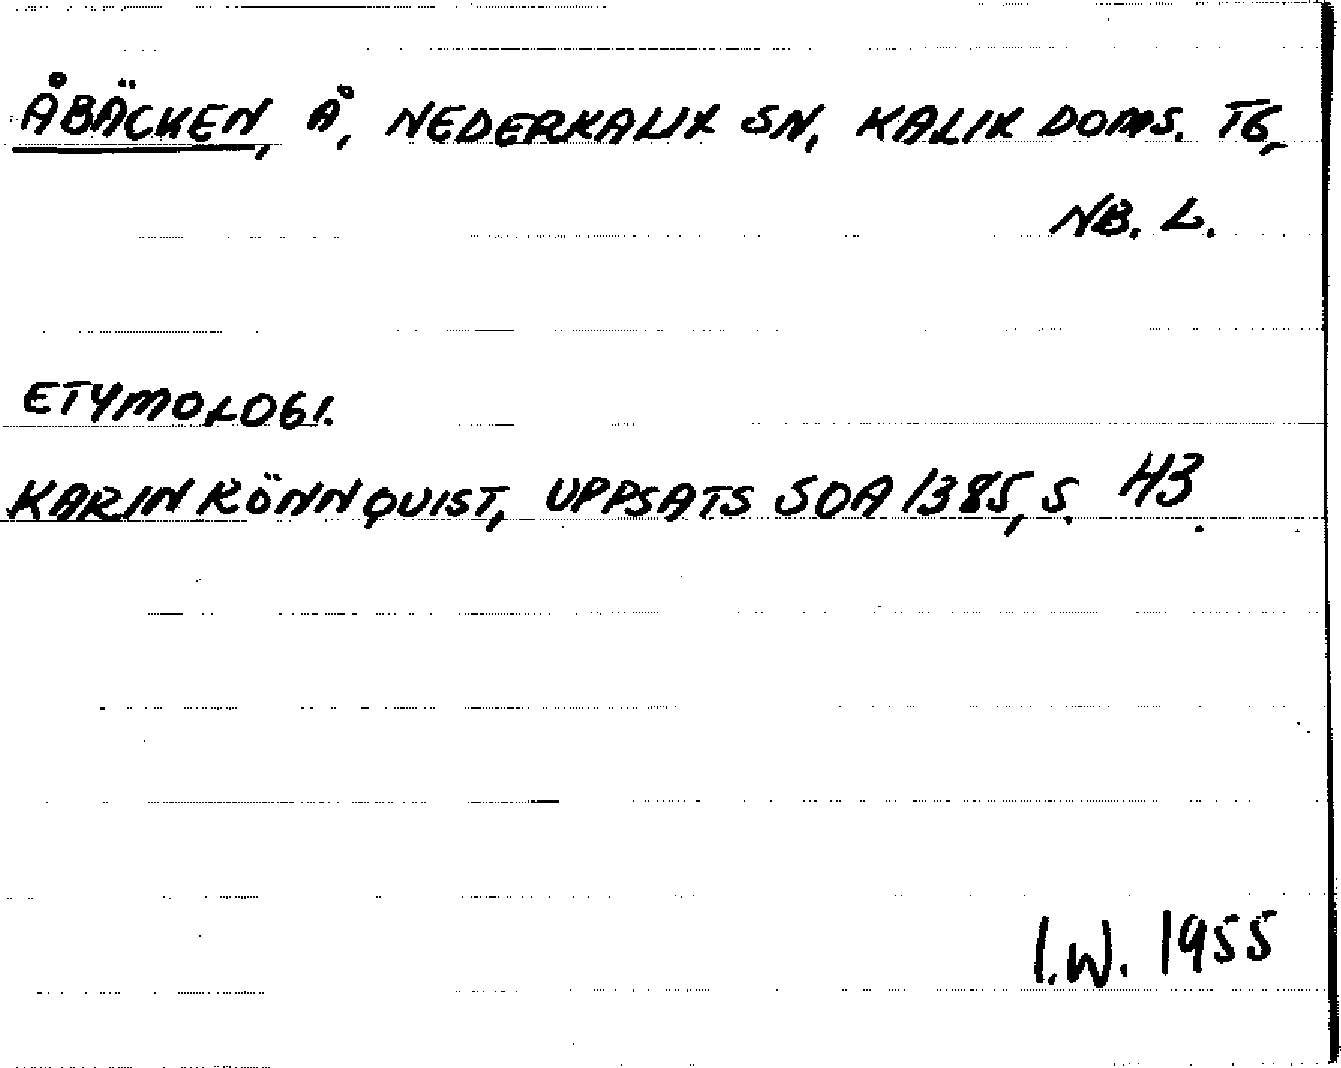 ÅBÄCKEN, Å, NEDERKALIX SN, KALIX DOMS. TG,
NB. L.
ETYMOLOGI.
KARIN RÖNNQUIST, UPPSATS SOA 1385, S. 43.
I.W. 1955